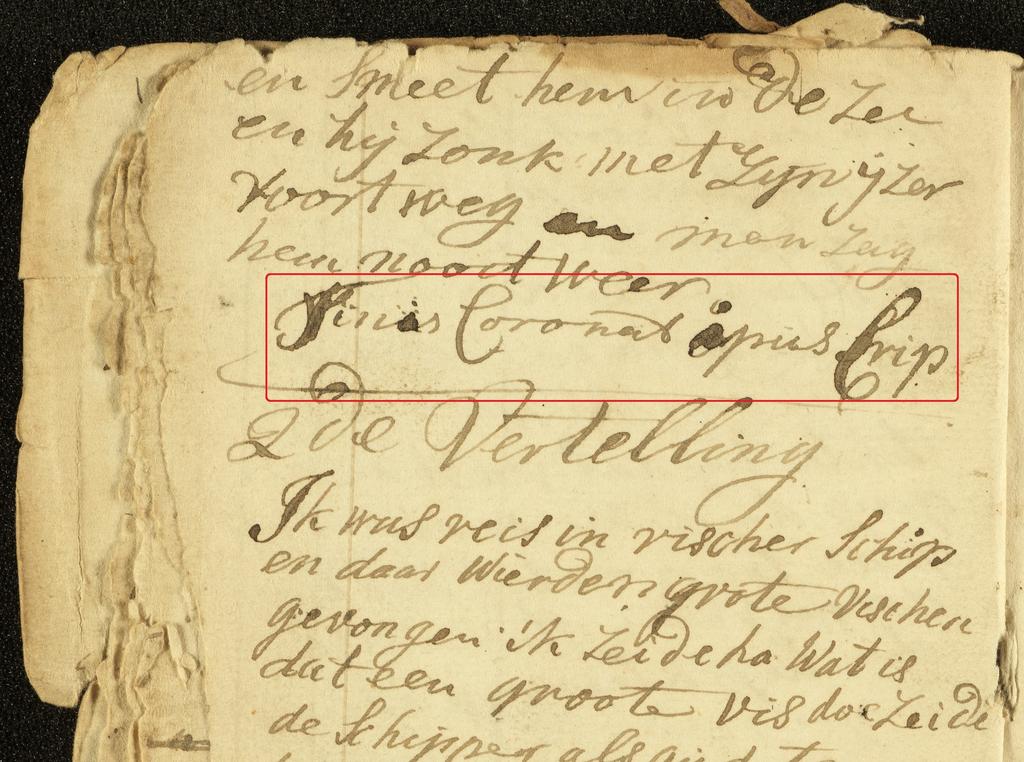 en smeet hem in de zee
en hij zonk met zijn ijzer
voort weg en men zag
hem nooit weer
Finis Coronat opus Crip
2de Vertelling
Ik was reis in vischer Schip
en daar wierden grote Vischen
gevongen ik zeide ha Wat is
dat een groote vis doe zeide
de Schipper als